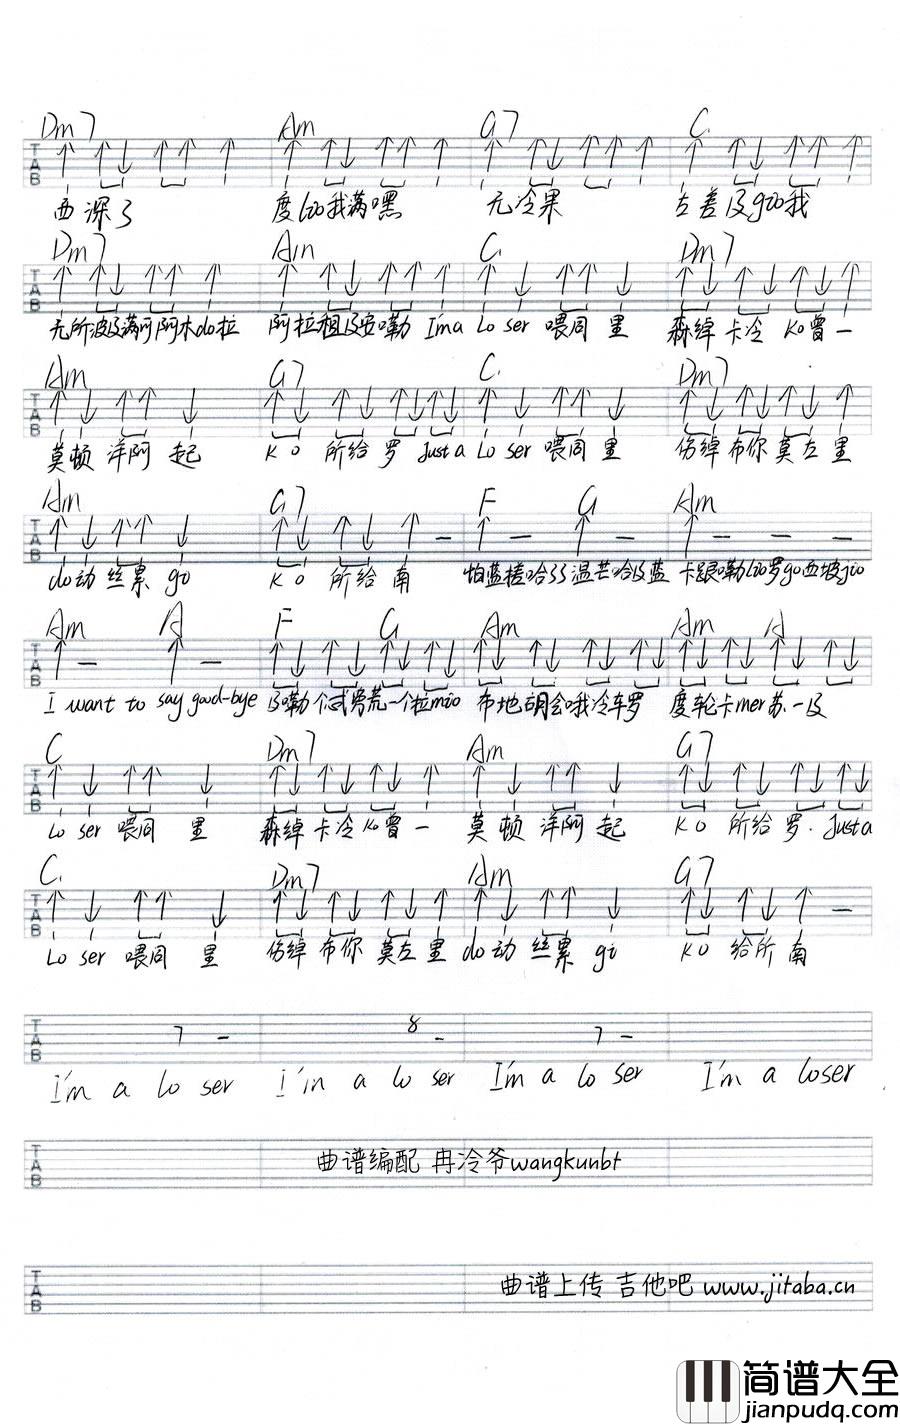 Dm7 Am G7 C
西深了 度lio我满嘿 无冷果 左善及gio我
Dm7 Am C Dm7
无所波及满阿阿木do拉 阿拉租及安嘞 I'm a Lo ser 喂同 里 森绰 卡冷 Ko曾一
Am G7 C Dm7
莫顿 洋阿 起 K o 所给 罗 Just a Lo ser 喂同 里 伤绰 布你 莫左 里
Am G7 F G Am
do动 丝累 gi K o 所给 南 怕蓝搓哈了温芒哈及蓝 卡跟嘞lio罗go西坡jio
Am A F G Am Am A
I want to say good-bye 及嘞个式 荒一个拉mio 布地胡会哦冷车罗 度轮卡mer苏一及
C Dm7 Am G7
Lo ser 喂同 里 森绰 卡冷 Ko曾 一 莫顿 洋阿 起 K o 所给 罗. Just a
C Dm7 Am G7
Lo ser 喂同 里 伤绰 布你 莫左 里 do动 丝累 gi K o 给所 南
7 – 8 – 7 –
I'm a lo ser I'm a lo ser I'm a lo ser I'm a loser
曲谱编配 冉冷爷wangkunbt
曲谱上传 吉他吧 www.jitaba.cn
简谱大全
jianpudq.com